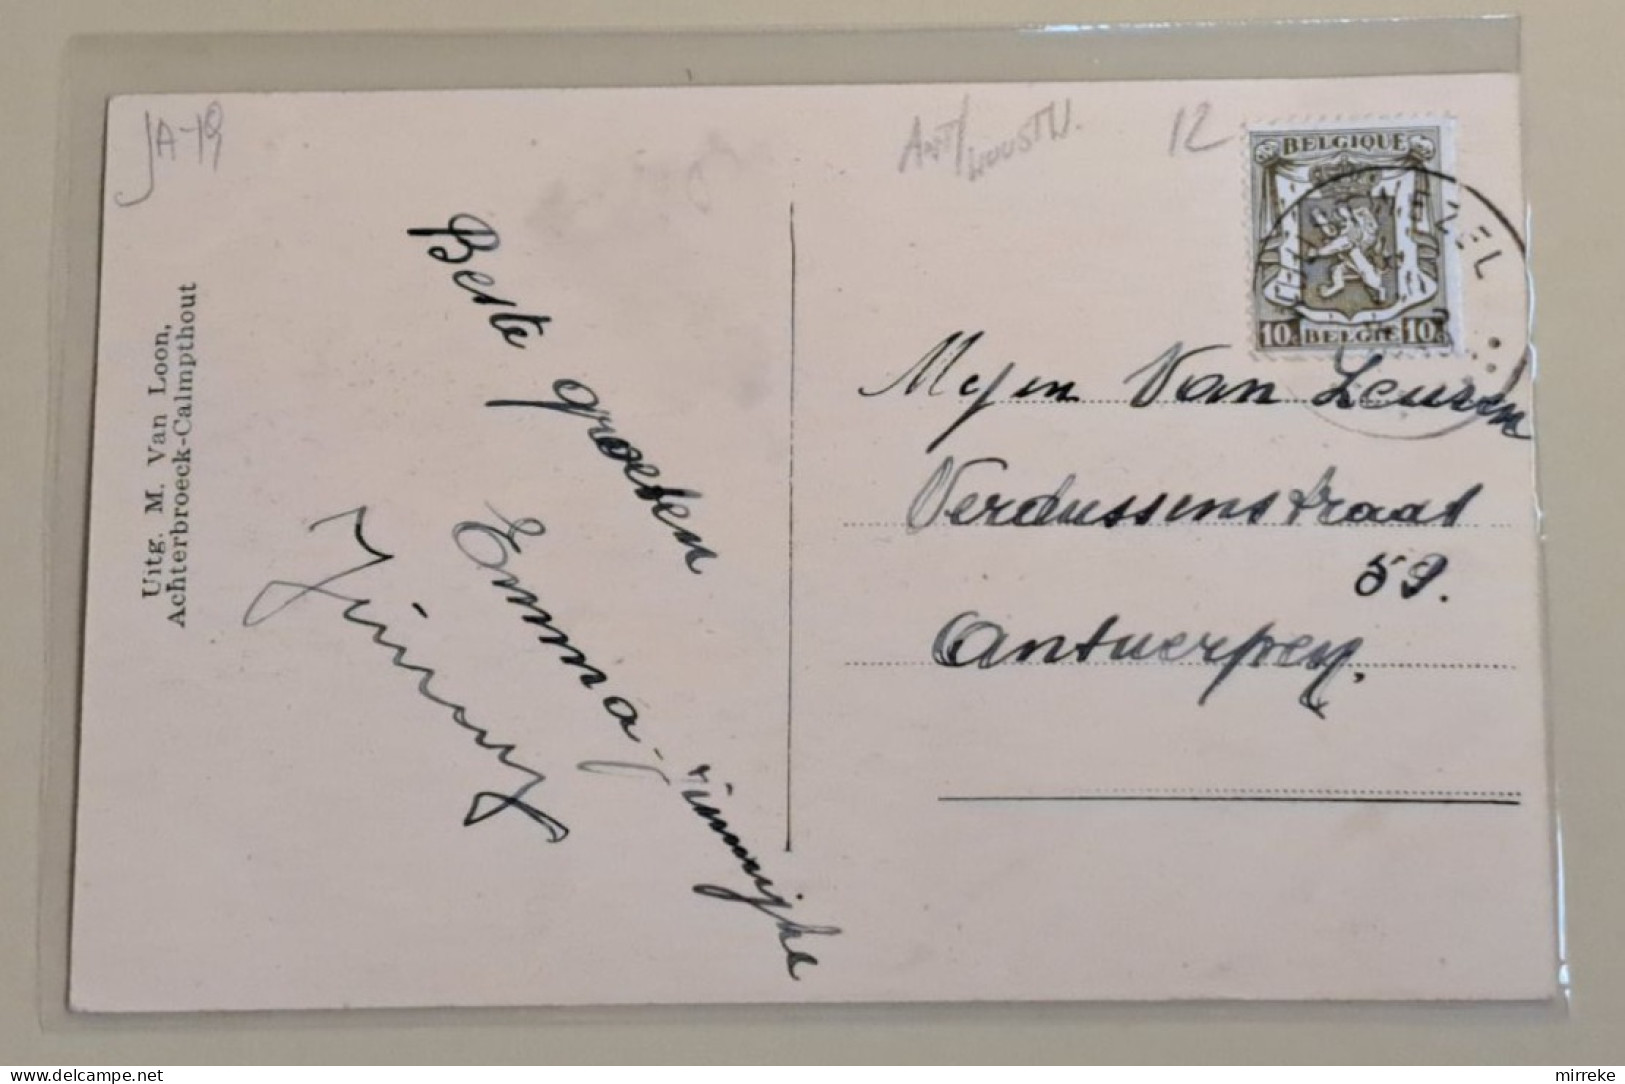 JA-19
12
BELGIQUE
10c BELGIE 10c
Uitg. M. Van Loon,
Achterbroeck-Calmpthout
Beste groeten
Emma
Van Leusen
Verdussenstraat
59.
Antwerpen.
delcampe.net
mirreke